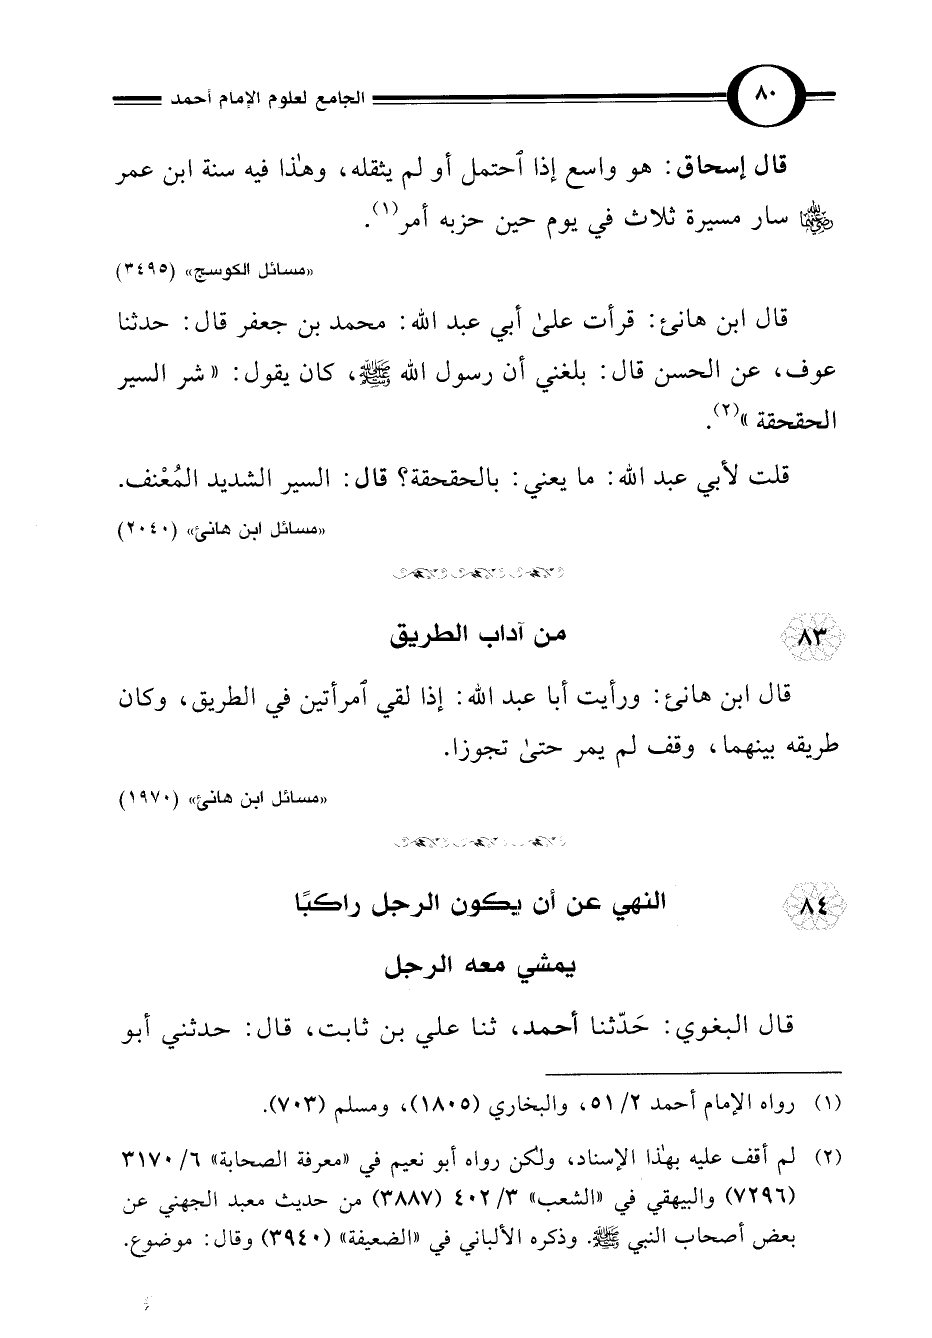 ٨٠ الجامع لعلوم الإمام أحمد
قال إسحاق: هو واسع إذا ٱحتمل أو لم يثقله، وهذا فيه سنة ابن عمر
رضي الله عنهما سار مسيرة ثلاث في يوم حين حزبه أمر(١).
«مسائل الكوسج» (٣٤٩٥)
قال ابن هانئ: قرأت علىٰ أبي عبد الله: محمد بن جعفر قال: حدثنا
عوف، عن الحسن قال: بلغني أن رسول الله ﷺ، كان يقول: «شر السير
الحقحقة»(٢).
قلت لأبي عبد الله: ما يعني: بالحقحقة؟ قال: السير الشديد المُعْنف.
«مسائل ابن هانئ» (٢٠٤٠)
٨٣ من آداب الطريق
قال ابن هانئ: ورأيت أبا عبد الله: إذا لقي ٱمرأتين في الطريق، وكان
طريقه بينهما، وقف لم يمر حتىٰ تجوزا.
«مسائل ابن هانئ» (١٩٧٠)
٨٤ النهي عن أن يكون الرجل راكبًا
يمشي معه الرجل
قال البغوي: حَدّثنا أحمد، ثنا علي بن ثابت، قال: حدثني أبو
(١) رواه الإمام أحمد ٢/ ٥١، والبخاري (١٨٠٥)، ومسلم (٧٠٣).
(٢) لم أقف عليه بهٰذا الإسناد، ولكن رواه أبو نعيم في «معرفة الصحابة» ٦/ ٣١٧٠
(٧٢٩٦) والبيهقي في «الشعب» ٣/ ٤٠٢ (٣٨٨٧) من حديث معبد الجهني عن
بعض أصحاب النبي ﷺ. وذكره الألباني في «الضعيفة» (٣٩٤٠) وقال: موضوع.